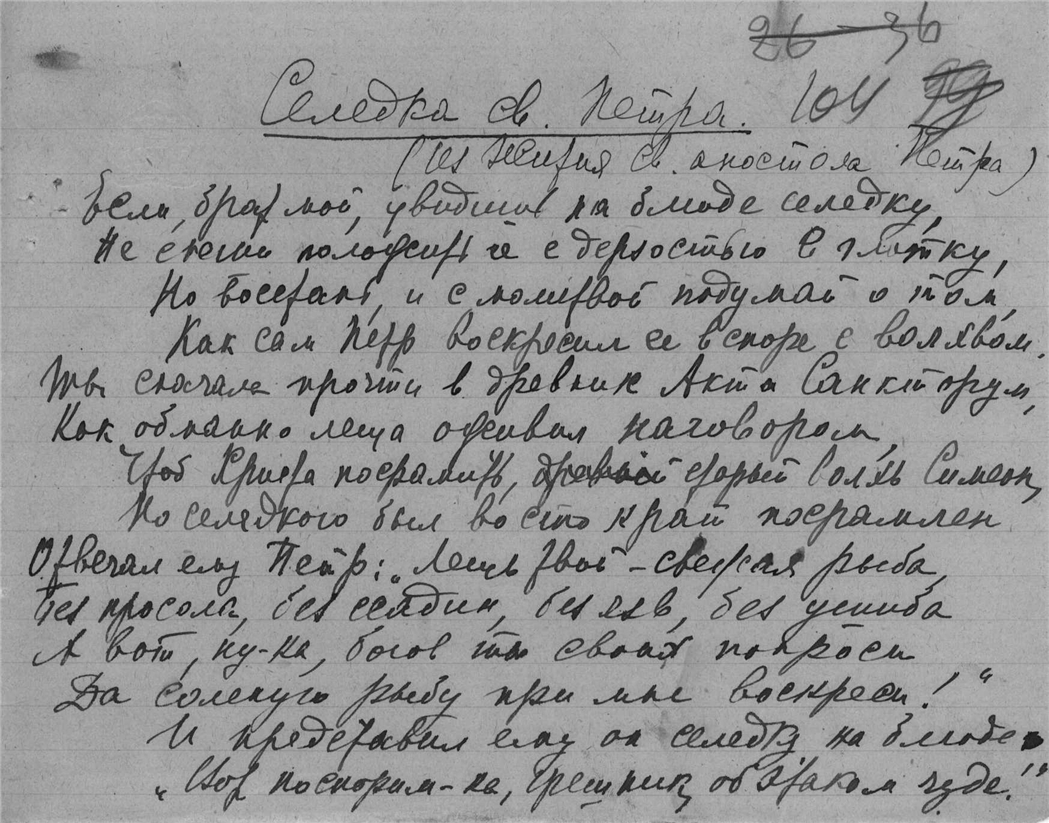 26 – 36
Селедка св. Петра. 104 99
(Из жития св. апостола Петра)
Если, брат мой, увидишь на блюде селедку,
Не спеши положить ее с дерзостью в глотку,
Но восстань, и с молитвой подумай о том,
Как сам Петр воскресил ее в споре с волхвом.
Ты сначала прочти в древних Акта Санкторум,
Как обманно леща оживил наговором,
Чтоб Христа посрамить, старый волхв Симеон,
Но селедкою был во сто крат посрамлен
Отвечал ему Петр: „Лещь твой – свежая рыба,
Без просола, без ссадин, без язв, без ушиба
А вот, ну-ка, богов ты своих попроси
Да соленую рыбу при мне воскреси!“
И представил ему он селедку на блюде
„Вот поспорим-ка, грешник, об этаком чуде!“